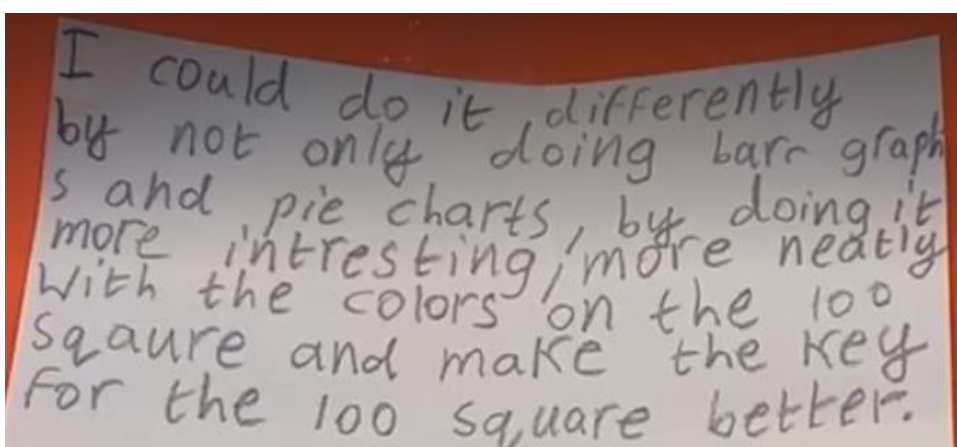 I could do it differently
by not only doing barr graph
s and pie charts, by doing it
more intresting, more neatly
with the colors on the 100
sqaure and make the key
for the 100 square better.